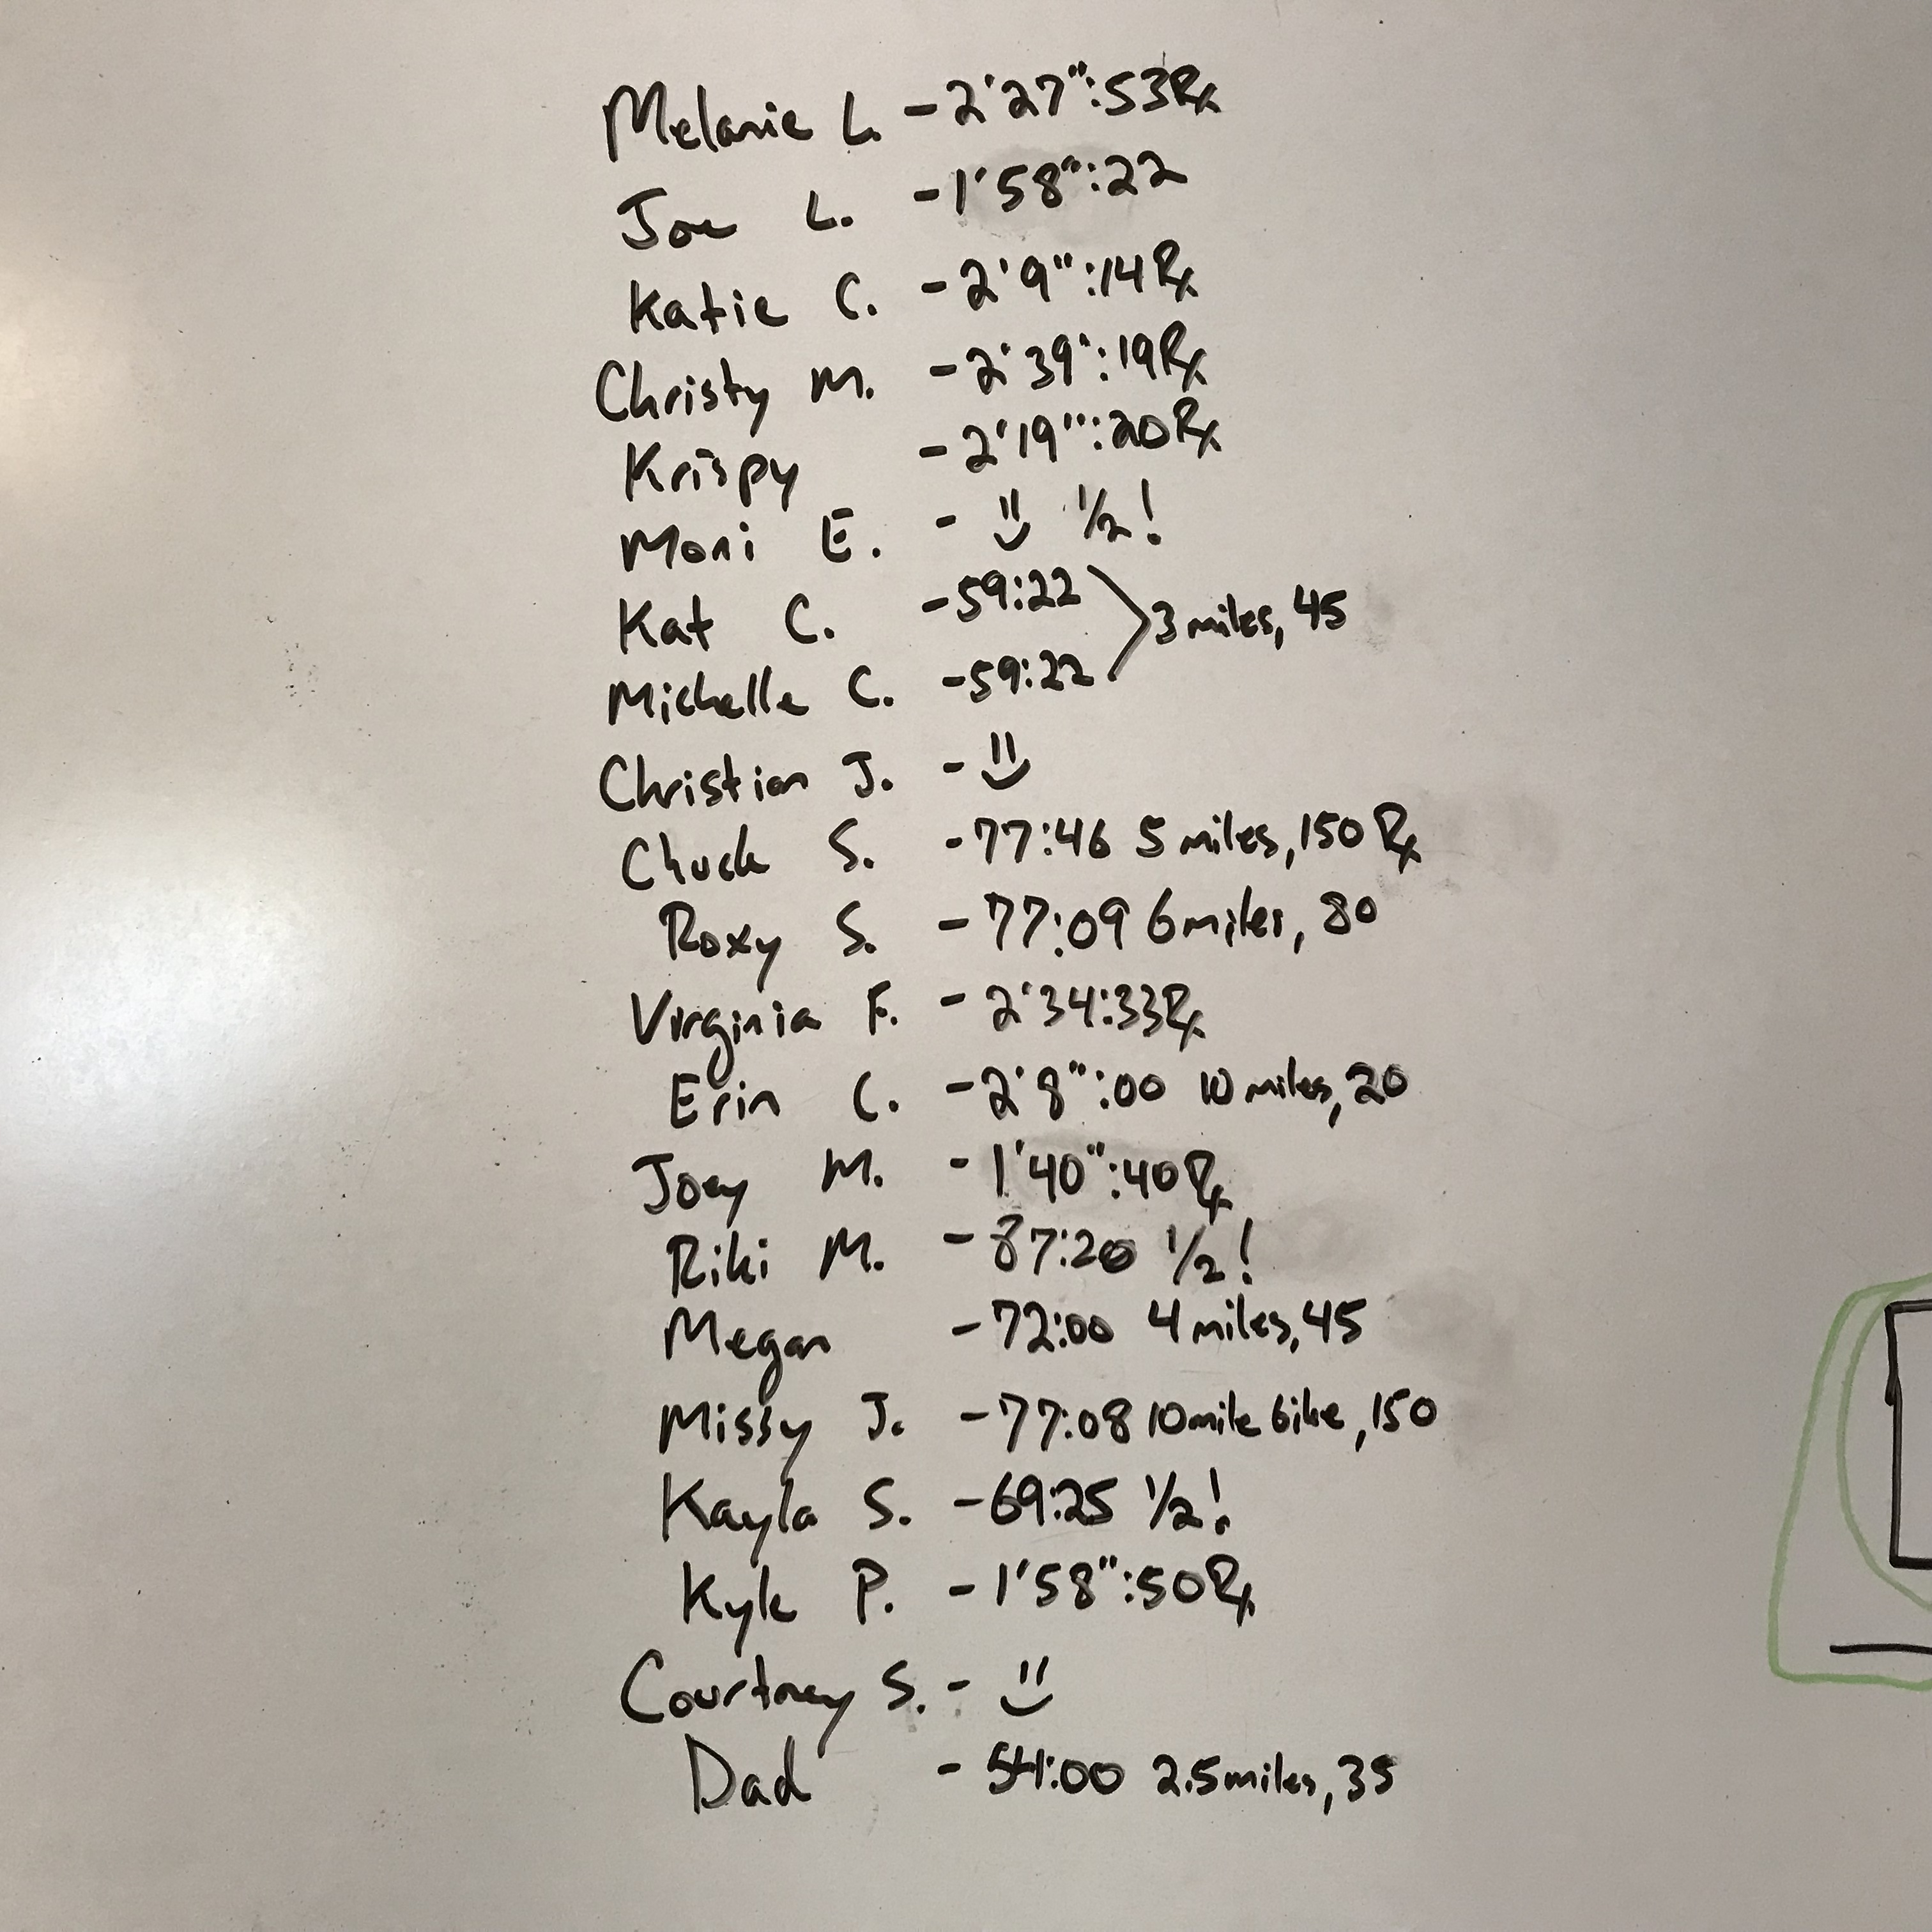 Melanie L. - 2'27":53 Rx
Joe L. - 1'58":22
Katie C. - 2'9":14 Rx
Christy M. - 2'39":19 Rx
Krispy - 2'19":20 Rx
Moni E. - 1/2!
Kat C. - 59:22
Michelle C. - 59:22
3 miles, 45
Christian J. -
Chuck S. - 77:46 5 miles, 150 Rx
Roxy S. - 77:09 6 miles, 80
Virginia F. - 2'34:33 Rx
Erin C. - 2'8":00 10 miles, 20
Joey M. - 1'40":40 Rx
Riki M. - 87:20 1/2!
Megan - 72:00 4 miles, 45
Missy J. - 77:08 10 mile bike, 150
Kayla S. - 69:25 1/2!
Kyle P. - 1'58":50 Rx
Courtney S. -
Dad - 54:00 2.5 miles, 35